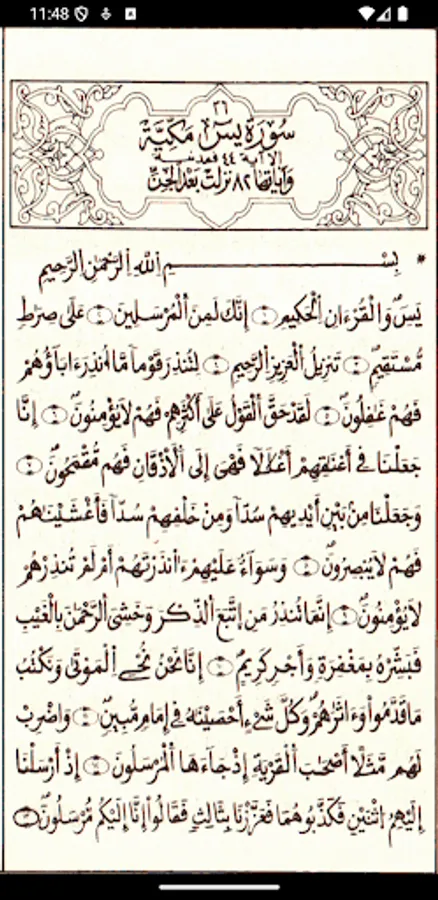 11:48
٣٦
سُورَةُ يسٓ مَكِّيَّة
إلا آية ٤٤ فمدنية
وَآيَاتها ٨٢ نزلت بَعْدَ الجنّ
بِسْمِ اِ۬للَّهِ اِ۬لرَّحْمَٰنِ اِ۬لرَّحِيمِ
يَسٓ وَالْقُرْءَانِ اِ۬لْحَكِيمِ ۝ إِنَّكَ لَمِنَ اَ۬لْمُرْسَلِينَ ۝ عَلَىٰ صِرَٰطٖ
مُّسْتَقِيمٖ ۝ تَنزِيلُ اُ۬لْعَزِيزِ اِ۬لرَّحِيمِ ۝ لِتُنذِرَ قَوْماٗ مَّا أُنذِرَ ءَابَآؤُهُمْ
فَهُمْ غَٰفِلُونَ ۝ لَقَدْ حَقَّ اَ۬لْقَوْلُ عَلَىٰ أَكْثَرِهِمْ فَهُمْ لَا يُؤْمِنُونَ ۝ إِنَّا
جَعَلْنَا فِي أَعْنَٰقِهِمْ أَغْلَٰلاٗ فَهِيَ إِلَى اَ۬لْأَذْقَانِ فَهُم مُّقْمَحُونَ ۝
وَجَعَلْنَا مِنۢ بَيْنِ أَيْدِيهِمْ سُدّاٗ وَمِنْ خَلْفِهِمْ سُدّاٗ فَأَغْشَيْنَٰهُمْ
فَهُمْ لَا يُبْصِرُونَ ۝ وَسَوَآءٌ عَلَيْهِمْ ءَا۬نذَرْتَهُمْ أَمْ لَمْ تُنذِرْهُمْ
لَا يُؤْمِنُونَ ۝ إِنَّمَا تُنذِرُ مَنِ اِ۪تَّبَعَ اَ۬لذِّكْرَ وَخَشِيَ اَ۬لرَّحْمَٰنَ بِالْغَيْبِ
فَبَشِّرْهُ بِمَغْفِرَةٖ وَأَجْرٖ كَرِيمٍ ۝ إِنَّا نَحْنُ نُحْيِ اِ۬لْمَوْتَىٰ وَنَكْتُبُ
مَا قَدَّمُوا۟ وَءَاثَٰرَهُمْ وَكُلَّ شَيْءٍ أَحْصَيْنَٰهُ فِي إِمَامٖ مُّبِينٖ ۝ وَاضْرِبْ
لَهُم مَّثَلًا أَصْحَٰبَ اَ۬لْقَرْيَةِ إِذْ جَآءَهَا اَ۬لْمُرْسَلُونَ ۝ إِذْ أَرْسَلْنَا
إِلَيْهِمُ اُ۪ثْنَيْنِ فَكَذَّبُوهُمَا فَعَزَّزْنَا بِثَالِثٖ فَقَالُوا۟ إِنَّا إِلَيْكُم مُّرْسَلُونَ ۝